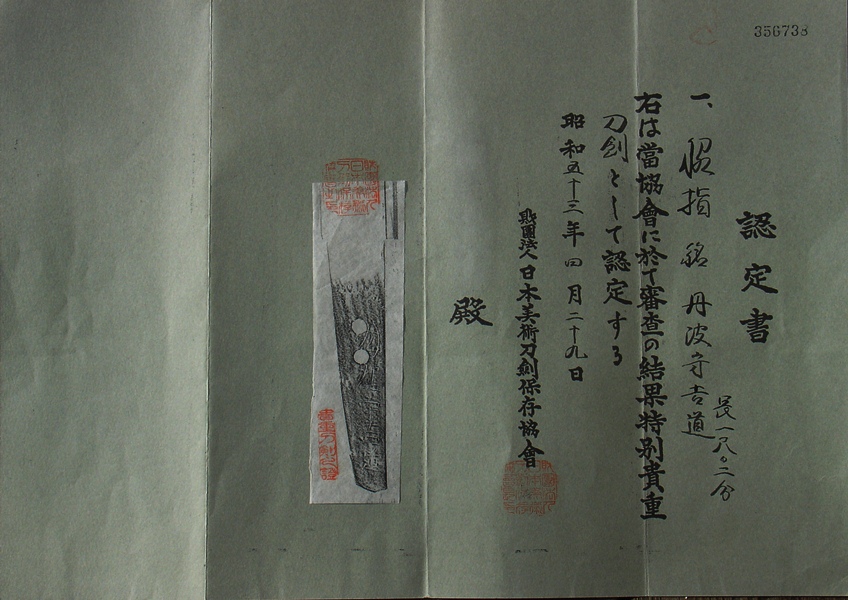 356738
認定書
一、脇指 銘 丹波守吉道
長一尺〇二分
右は當協會に於て審査の結果特別貴重
刀劍として認定する
昭和五十三年四月二十九日
財團法人日本美術刀劍保存協會
殿
貴重刀劍之證